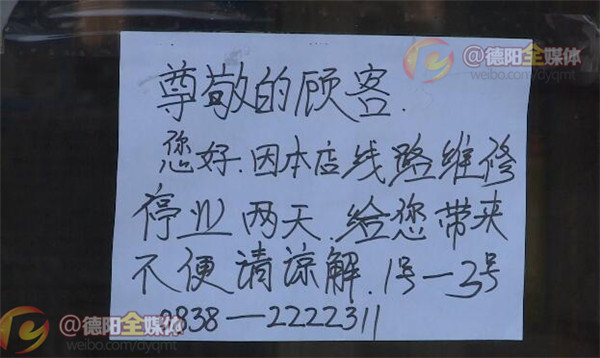 @德阳全媒体
weibo.com/dyqmt
尊敬的顾客.
您好.因本店线路维修
停业两天.给您带来
不便请谅解.1号—3号
0838—2222311
@德阳全媒体
weibo.com/dyqmt